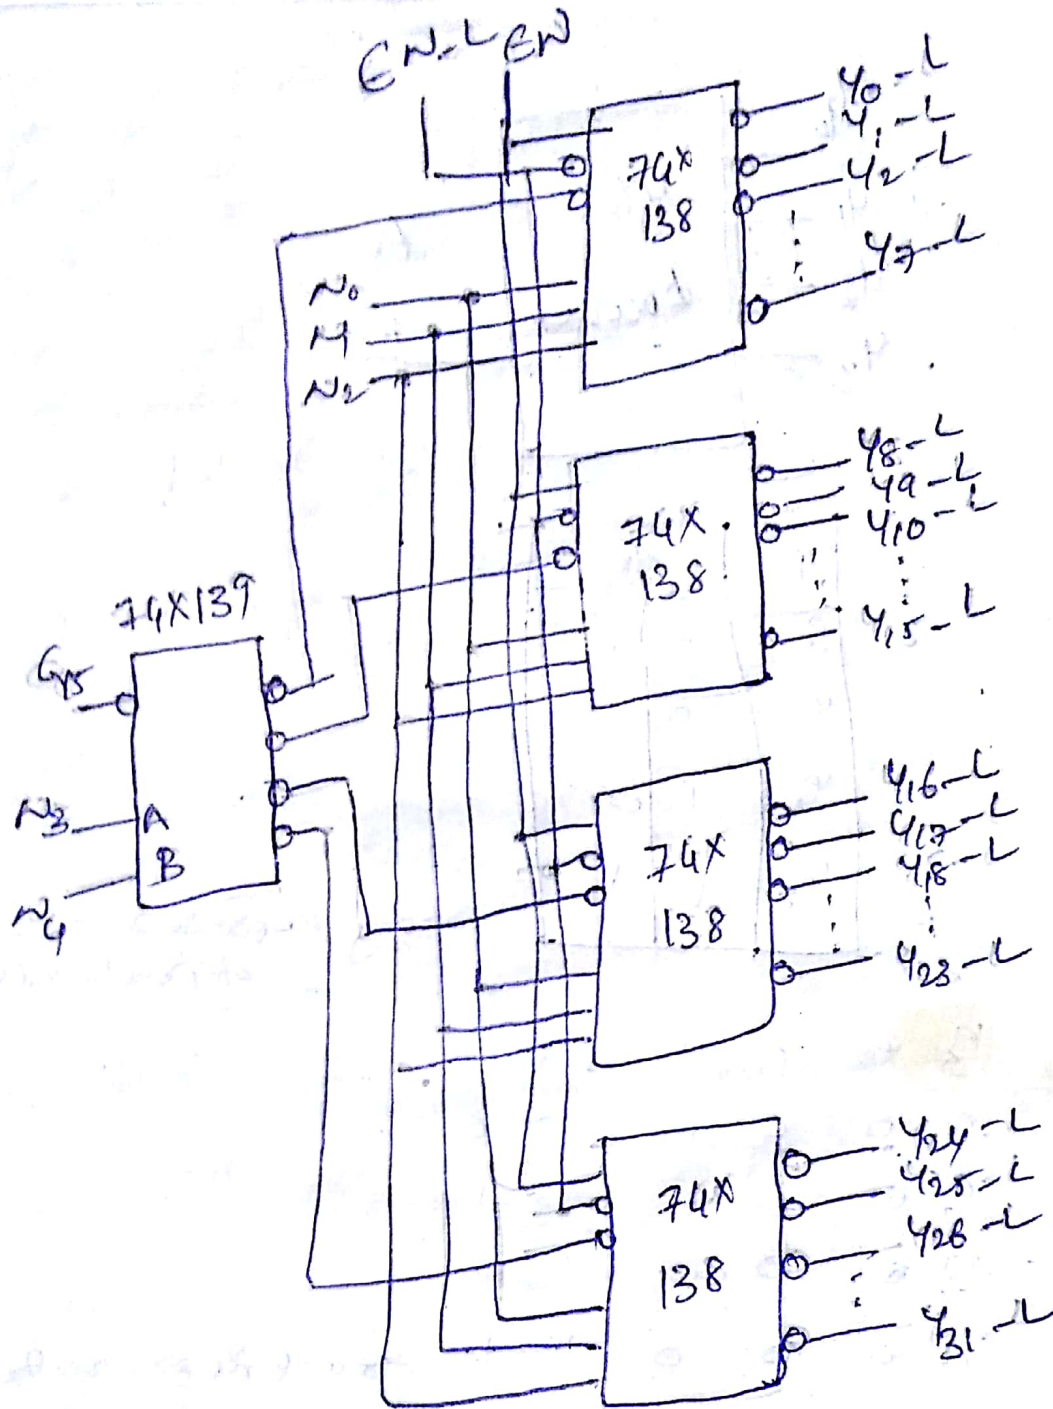 EN-L EN
74X
138
Y0-L
Y1-L
Y2-L
Y7-L
N0
N1
N2
74X
138
Y8-L
Y9-L
Y10-L
Y15-L
74X139
N3
A
B
N4
74X
138
Y16-L
Y17-L
Y18-L
Y23-L
74X
138
Y24-L
Y25-L
Y26-L
Y31-L